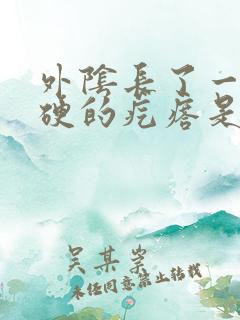 外陰長了一
硬的疙瘩是
吴某某
未经同意禁止转载